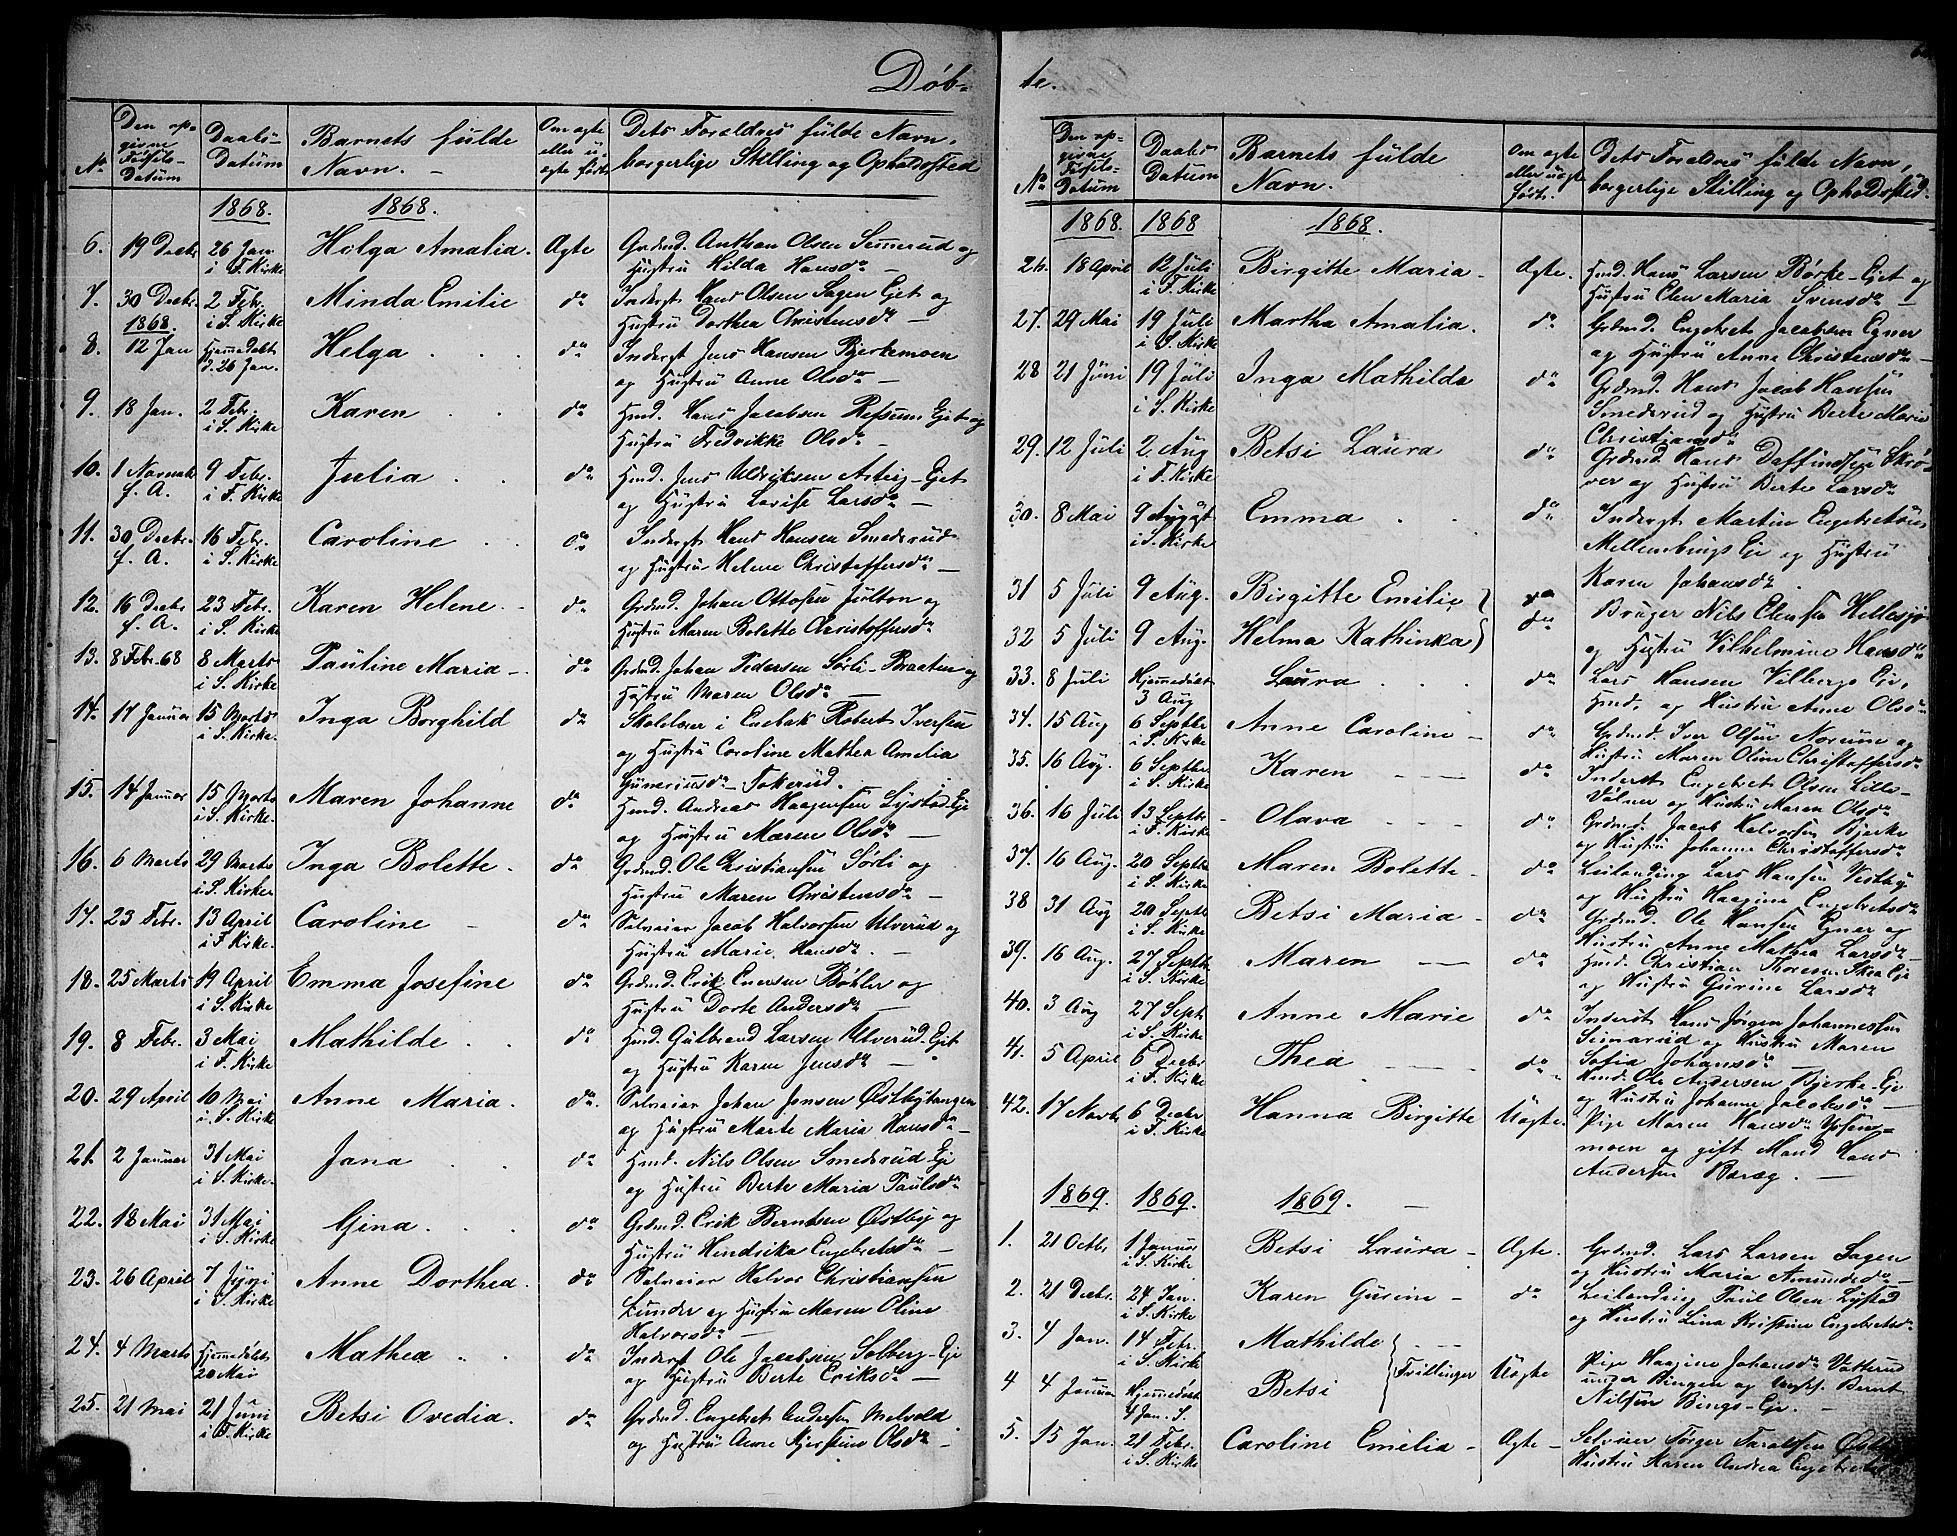 Døb-
No
Den op-
givne
Fødsels-
Datum
Daabs-
Datum
Barnets fulde
Navn. –
Om ægte
eller u-
ægte født.
Dets Forældres fulde Navn,
borgerlige Stilling og Opholdssted
1868. 1868.
6. 19 Decbr 26 Jan Helga Amalia. Ægte Grdmd. Anthon Olsen og
i F. Kirke Hustru Hilda Hansdr –
7. 30 Decbr. 2 Febr. Minda Emilie do Inderst Hans Olsen Sagen Eiet og
1868. i S. Kirke Hustru Dorthea Christensdr –
8. 12 Jan Hjemmedøbt Helga do Inderst Jens Hansen Bjerkemoen
d. 26 Jan. og Hustru Anne Olsdr –
9. 18 Jan. 2 Febr. Karen do Hmd. Hans Jacobsen Refsum Eiet og
i S. Kirke Hustru Fredrikke Olsdr –
10. 1 Novembr 9 Febr. Julia do Hmd. Jens Uldriksen Eiet
f. A. i F. Kirke og Hustru Lovise Larsdr –
11. 30 Decbr. 16 Febr. Caroline do Inderst Hans Hansen Smedsrud
f. A. i S. Kirke og Hustru Helene Christoffersdr –
12. 16 Decbr 23 Febr. Karen Helene. do Grdmd. Johan Ottosen og
f. A. i S. Kirke Hustru Maren Bolette Christoffersdr
13. 8 Febr. 68 8 Marts Pauline Maria – do Grdmd. Johan Pedersen Sørli-Braaten og
i S. Kirke Hustru Maren Olsdr
14. 17 Januar 15 Marts Inga Borghild do Skolelærer i Enebak Robert Iversen
i S. Kirke. og Hustru Caroline Mathea Amelia
Guneriusdr Tokerud.
15. 14 Januar 15 Marts Maren Johanne do Hmd. Andreas Haagensen Lystad-Eie
i S. Kirke. og Hustru Maren Olsdr –
16. 6 Marts 29 Marts Inga Bolette. do Grdmd. Ole Christiansen Sørli og
i S. Kirke Hustru Maren Christensdr –
17. 23 Febr. 13 April Caroline – do Selveier Jacob Halvorsen Ulverud og
i F. Kirke. Hustru Marie Hansdr –
18. 25 Marts 19 April Emma Josefine do Grdmd. Erik Enersen Bøhler og
i S. Kirke Hustru Dorte Andersdr –
19. 8 Febr. 3 Mai Mathilde do Hmd. Gulbrand Larsen Ulverud-Eiet
i F. Kirke og Hustru Karen Jensdr –
20. 29 April 10 Mai Anne Maria. do. Selveier Johan Jensen Østbytangen
i S. Kirke og Hustru Marte Maria Hansdr –
21. 2 Januar 31 Mai Jana do Hmd. Nils Olsen Smedsrud Eie
i S. Kirke. og Hustru Berte Maria Paulsdr
22. 18 Mai 31 Mai Gina. do Grdmd. Erik Berntsen Østby og
i S. Kirke Hustru Hendrika Engebretsdr –
23. 26 April 7 Juni Anne Dorthea. do Selveier Halvor Christiansen
i S. Kirke Lunder og Hustru Maren Oline
Halvorsdr –
24. 4 Marts Hjemmedøbt Mathea do Inderst Ole Jacobsen Solberg-Eie
20 Mai og Hustru Berte Eriksdr –
25. 21 Mai 21 Juni Betsi Ovedia. do Grdmd. Engebret Andersen Melvold
i F. Kirke og Hustru Anne Kjerstine Olsdr –
te.
No
Den op-
givne
Fødsels-
Datum
Daabs
Datum
Barnets fulde
Navn.
Om ægte
eller uægte
født.
Dets Forældres fulde Navn,
borgerlige Stilling og Opholdssted.
1868. 1868 1868.
26. 18 April 12 Juli Birgitte Maria – Ægte. Hmd. Hans Larsen Børke-Eiet og
i F. Kirke Hustru Elen Maria Svensdr –
27. 29 Mai 19 Juli Martha Amalia. do Grdmd. Engebret Jacobsen Egner
i S. Kirke og Hustru Anne Christensdr –
28 21 Juni 19 Juli Inga Mathilda do Grdmd. Hans Jacob Hansen
i S. Kirke Smedsrud og Hustru Berte Marie
Christiansdr
29. 12 Juli 2 Aug Betsi Laura do Grdmd. Hans Daffinssøn Skrø-
i F. Kirke ver og Hustru Berte Larsdr
30. 8 Mai 9 August Emma do Inderst Martin Engebretsen
i S. Kirke Mellembings Eie og Hustru
Karen Johansdr
31 5 Juli 9 Aug. Birgitte Emilie do Bruger Nils Elensen Hellesjø
32 5 Juli 9 Aug. Helma Kathinka do og Hustru Vilhelmine Hansdr
33. 8 Juli Hjemmedøbt Laura do Lars Hansen Vilbergs Eie,
3 Aug Hmd, og Hustru Anne Olsdr
34. 15 Aug 6 Septbr Anne Caroline – do Grdmd. Iver Olsen Norum og
i S. Kirke Hustru Maren Oline Christoffersdr
35. 16 Aug. 6 Septbr Karen do Inderst Engebret Olsen Lille-
i S. Kirke Vølner og Hustru Maren Olsdr
36. 16 Juli 13 Septbr Olava do Grdmd. Jacob Halvorsen Bjerke
i F. Kirke og Hustru Johanne Christoffersdr
37. 16 Aug. 20 Septbr Maren Bolette do Leilending Lars Hansen Vestby
i S. Kirke og Hustru Haagine Engebretsdr
38 31 Aug 20 Septbr Betsi Maria – do Grdmd. Ole Hansen Egner og
i S. Kirke Hustru Anne Mathea Larsdr –
39. 16 Aug. 27 Septbr Maren do Hmd. Christian Thoresen Thea Eie
i S. Kirke og Hustru Gurine Larsdr
40. 3 Aug 27 Septbr Anne Marie do Inderst Hans Jørgen Johannessen
i S. Kirke Seimerud og Hustru Maren
Sofia Johansdr
41. 5 April 6 Decbr Thea do Hmd. Ole Andersen Bjerke-Eie
i F. Kirke og Hustru Johanne Jacobsdr –
42. 17 Novbr 6 Decbr Hanna Birgitte Uægte. Pige Maren Hansdr
i F. Kirke moen og gift Mand Hans
Andersen Baræg. –
1869 1869. 1869. –
1. 21 Octbr 1 Januar Betsi Laura – Ægte. Grdmd. Lars Larsen Sagen
i S. Kirke og Hustru Maria Amundsdr –
2. 21 Decbr. 24 Jan. Karen Gurine – do Leilending Paul Olsen Lystad
i S. Kirke og Hustru Lina Kristine Engebretsdr
3. 4 Jan. 14 Febr. Mathilde
i S. Kirke
4 4 Januar Hjemmedøbt Betsi Tvillinger Uægte Pige Haagine Johansdr Vatterud
4 Jan. S. under Bingen og Ungk. Bernt
Nilsen Bings-Eie. –
5. 15 Jan. 21 Febr. Caroline Emelia – Ægte – Selveier Torger Taraldsen
i S. Kirke Hustru Karen Andrea